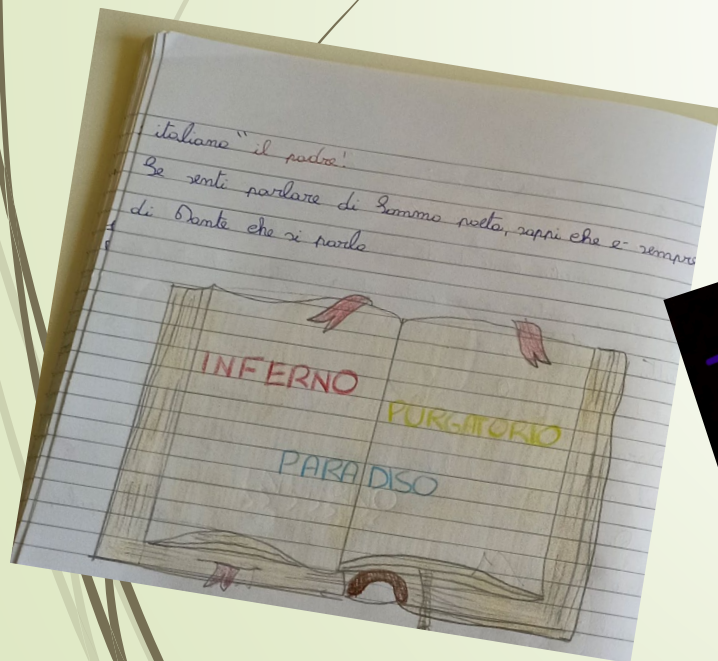 italiano "il padre!
Se senti parlare di Sommo poeta, sappi che e' sempre
di Dante che si parla
INFERNO
PURGATORIO
PARADISO